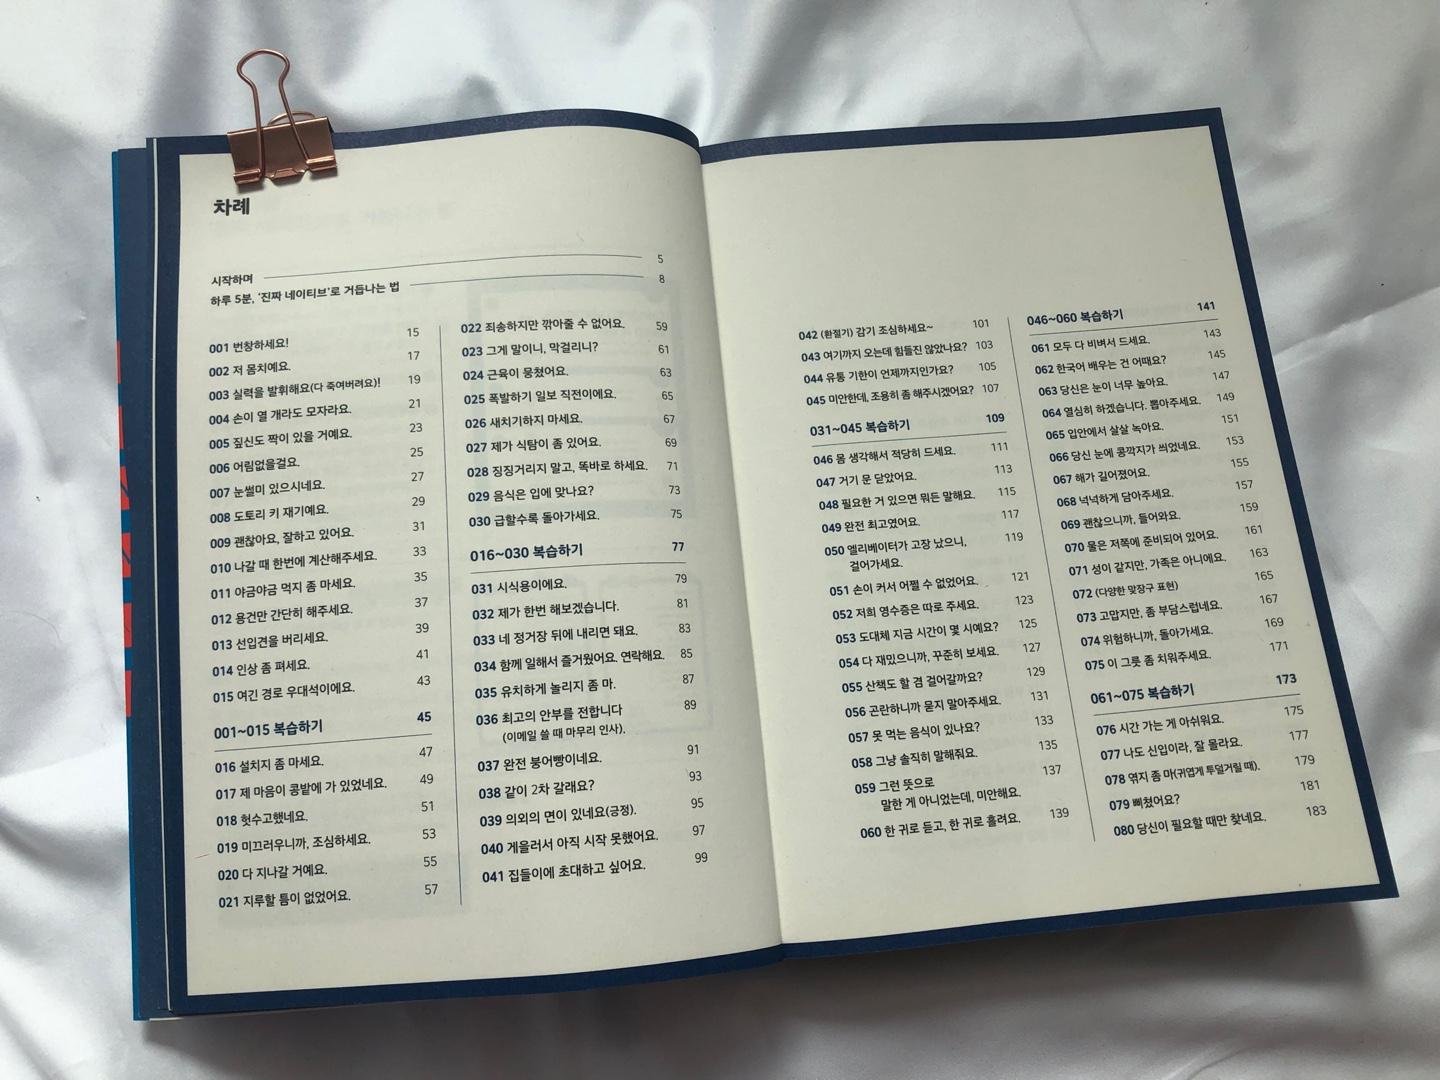 차례
시작하며 5
하루 5분, ‘진짜 네이티브’로 거듭나는 법 8
001 번창하세요! 15
002 저 몸치예요. 17
003 실력을 발휘해요(다 죽여버려요)! 19
004 손이 열 개라도 모자라요. 21
005 짚신도 짝이 있을 거예요. 23
006 어림없을걸요. 25
007 눈썰미 있으시네요. 27
008 도토리 키 재기예요. 29
009 괜찮아요, 잘하고 있어요. 31
010 나갈 때 한번에 계산해주세요. 33
011 야금야금 먹지 좀 마세요. 35
012 용건만 간단히 해주세요. 37
013 선입견을 버리세요. 39
014 인상 좀 펴세요. 41
015 여긴 경로 우대석이에요. 43
001~015 복습하기 45
016 설치지 좀 마세요. 47
017 제 마음이 콩밭에 가 있었네요. 49
018 헛수고했네요. 51
019 미끄러우니까, 조심하세요. 53
020 다 지나갈 거예요. 55
021 지루할 틈이 없었어요. 57
022 죄송하지만 깎아줄 수 없어요. 59
023 그게 말이니, 막걸리니? 61
024 근육이 뭉쳤어요. 63
025 폭발하기 일보 직전이에요. 65
026 새치기하지 마세요. 67
027 제가 식탐이 좀 있어요. 69
028 징징거리지 말고, 똑바로 하세요. 71
029 음식은 입에 맞나요? 73
030 급할수록 돌아가세요. 75
016~030 복습하기 77
031 시식용이에요. 79
032 제가 한번 해보겠습니다. 81
033 네 정거장 뒤에 내리면 돼요. 83
034 함께 일해서 즐거웠어요. 연락해요. 85
035 유치하게 놀리지 좀 마. 87
036 최고의 안부를 전합니다 89
(이메일 쓸 때 마무리 인사).
037 완전 붕어빵이네요. 91
038 같이 2차 갈래요? 93
039 의외의 면이 있네요(긍정). 95
040 게을러서 아직 시작 못했어요. 97
041 집들이에 초대하고 싶어요. 99
042 (환절기) 감기 조심하세요~ 101
043 여기까지 오는데 힘들진 않았나요? 103
044 유통 기한이 언제까지인가요? 105
045 미안한데, 조용히 좀 해주시겠어요? 107
031~045 복습하기 109
046 몸 생각해서 적당히 드세요. 111
047 거기 문 닫았어요. 113
048 필요한 거 있으면 뭐든 말해요. 115
049 완전 최고였어요. 117
050 엘리베이터가 고장 났으니, 119
걸어가세요.
051 손이 커서 어쩔 수 없었어요. 121
052 저희 영수증은 따로 주세요. 123
053 도대체 지금 시간이 몇 시예요? 125
054 다 재밌으니까, 꾸준히 보세요. 127
055 산책도 할 겸 걸어갈까요? 129
056 곤란하니까 묻지 말아주세요. 131
057 못 먹는 음식이 있나요? 133
058 그냥 솔직히 말해줘요. 135
059 그런 뜻으로 137
말한 게 아니었는데, 미안해요.
060 한 귀로 듣고, 한 귀로 흘려요. 139
046~060 복습하기 141
061 모두 다 비벼서 드세요. 143
062 한국어 배우는 건 어때요? 145
063 당신은 눈이 너무 높아요. 147
064 열심히 하겠습니다. 뽑아주세요. 149
065 입안에서 살살 녹아요. 151
066 당신 눈에 콩깍지가 씌었네요. 153
067 해가 길어졌어요. 155
068 넉넉하게 담아주세요. 157
069 괜찮으니까, 들어와요. 159
070 물은 저쪽에 준비되어 있어요. 161
071 성이 같지만, 가족은 아니에요. 163
072 (다양한 맞장구 표현) 165
073 고맙지만, 좀 부담스럽네요. 167
074 위험하니까, 돌아가세요. 169
075 이 그릇 좀 치워주세요. 171
061~075 복습하기 173
076 시간 가는 게 아쉬워요. 175
077 나도 신입이라, 잘 몰라요. 177
078 엮지 좀 마(귀엽게 투덜거릴 때). 179
079 삐쳤어요? 181
080 당신이 필요할 때만 찾네요. 183